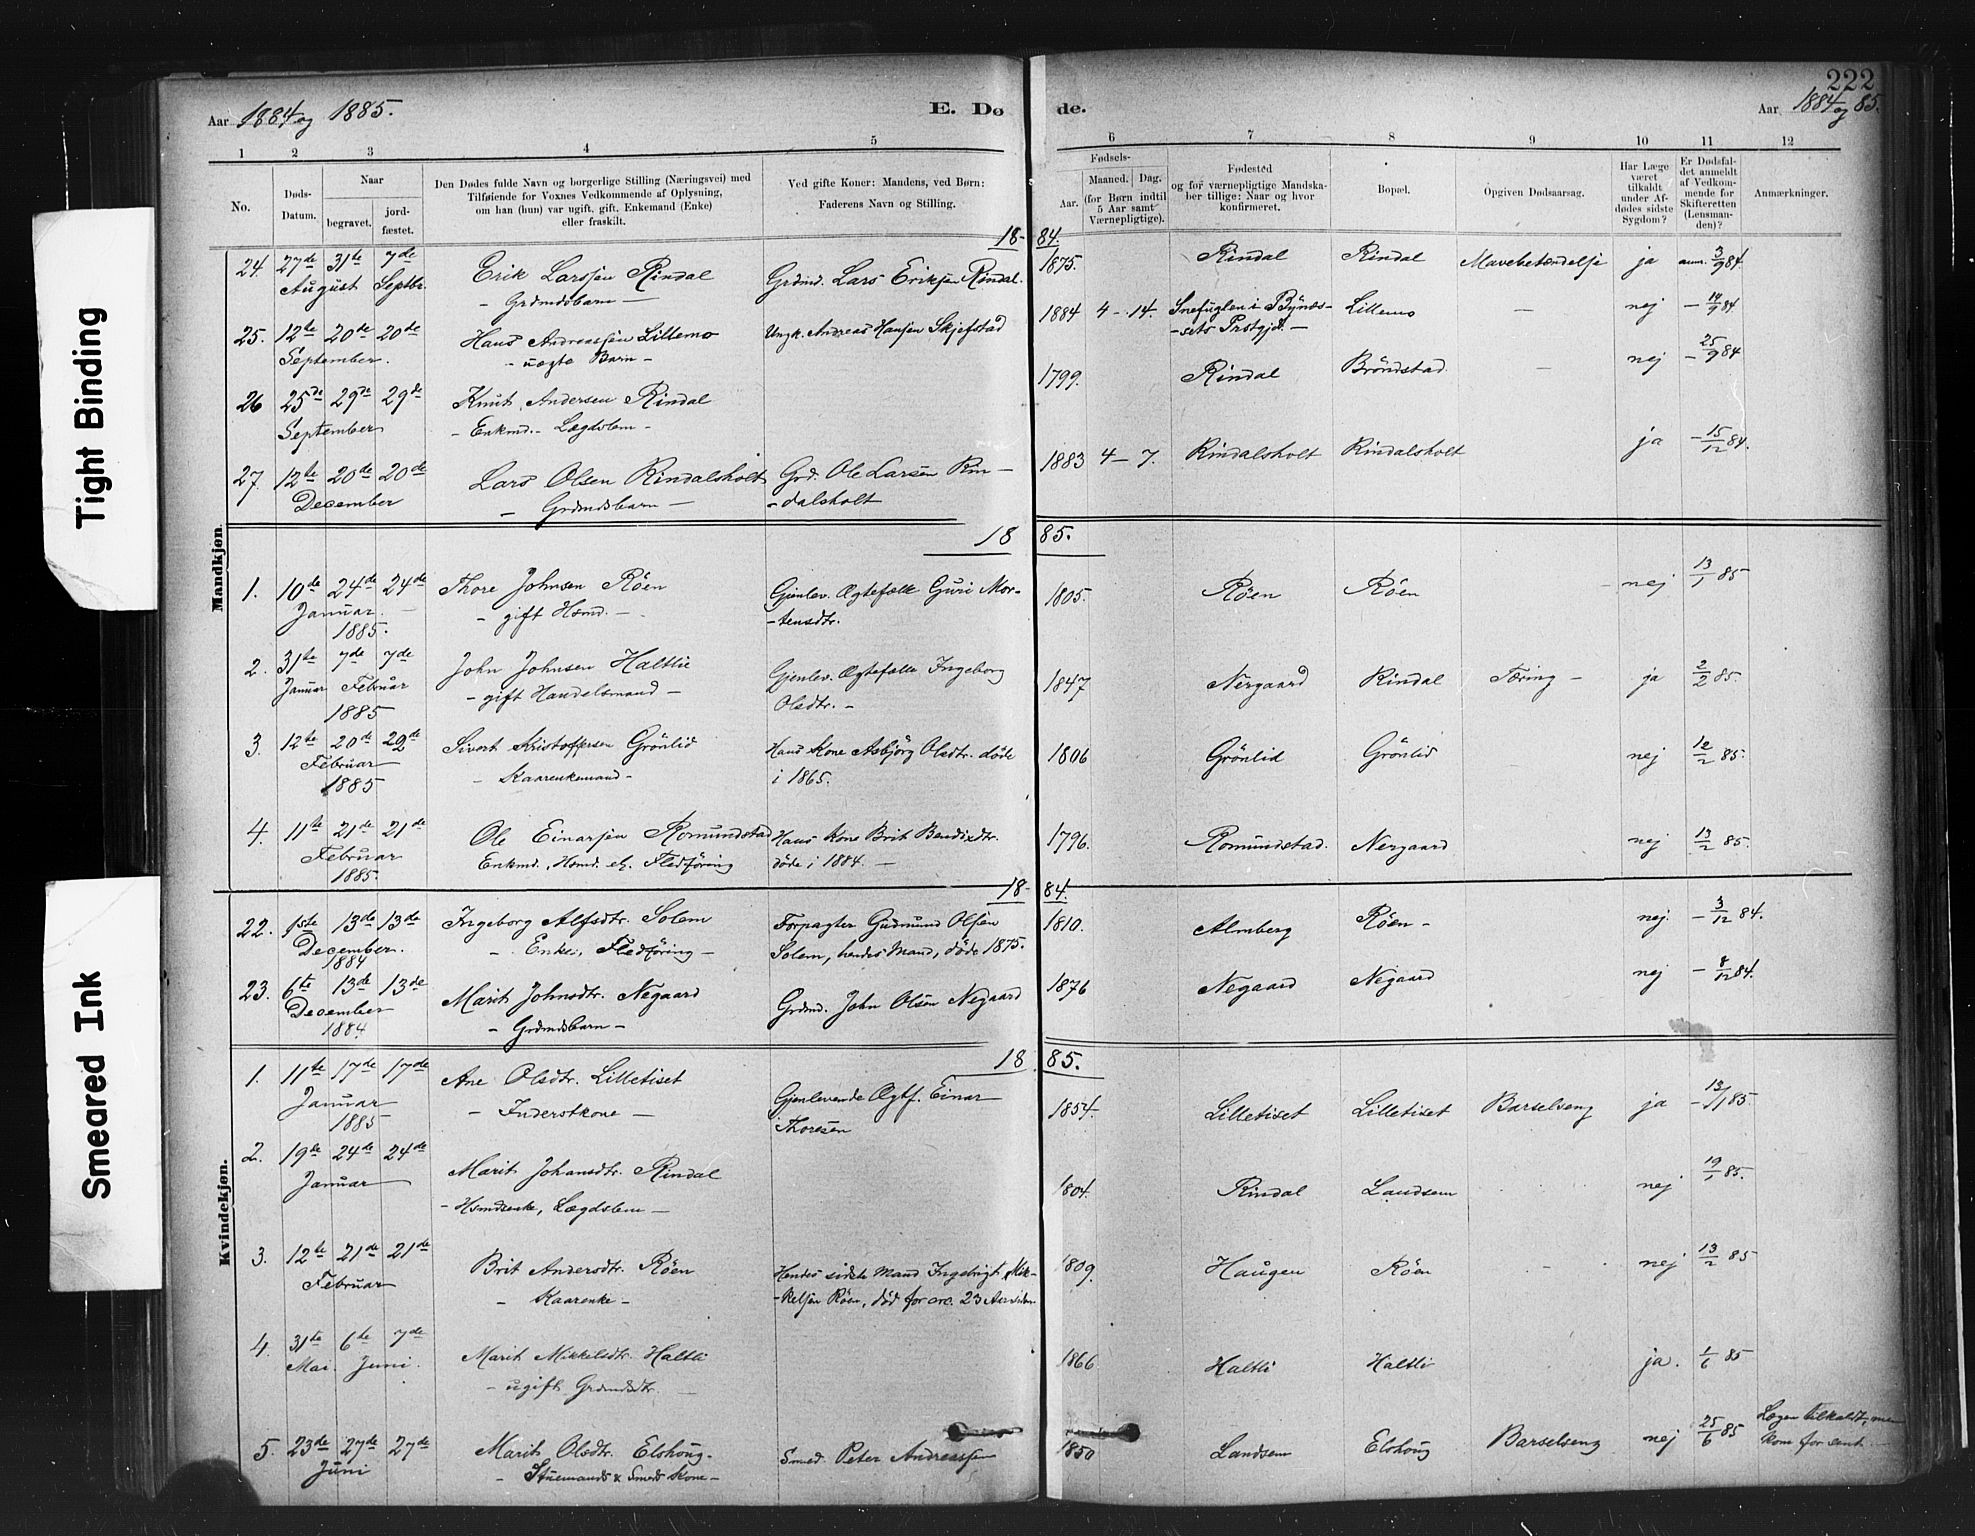 222
Aar 1884 og 1885.
E. Døde.
Aar 1884 og 85.
1 2 3 4 5 6 7 8 9 10 11 12
No.
Døds-Datum.
Naar
begravet.
jord-fæstet.
Den Dødes fulde Navn og borgerlige Stilling (Næringsvei) med
Tilføiende for Voxnes Vedkommende af Oplysning,
om han (hun) var ugift, gift, Enkemand (Enke)
eller fraskilt.
Ved gifte Koner: Mandens, ved Børn:
Faderens Navn og Stilling.
Fødsels-
Aar.
Maaned. Dag.
(for Børn indtil
5 Aar samt
Værnepligtige).
Fødestéd
og for værnepligtige Mandska-
ber tillige: Naar og hvor
konfirmeret.
Bopæl.
Opgiven Dødsaarsag.
Har Læge
været
tilkaldt
under Af-
dødes sidste
Sygdom?
Er Dødsfal-
det anmeldt
af Vedkom-
mende for
Skifteretten
(Lensman-
den)?
Anmærkninger.
Mandkjøn.
18-84.
24 27de 31te 7de Erik Larssen Rindal Grdmd. Lars Eriksen Rindal. 1875. Rindal Rindal Mavebetændelse ja anm. 3/9 84
August Septbr. - Grdmdsbarn -
25. 12te 20de 20de Hans Andreassen Lillemo Ungk. Andreas Hansen Skjefstad 1884 4-14. Snefuglen i Bynes- Lillemo - nej - 14/9 84
September. - uægte Barn - -sets Prstgjd. -
26 25de 29de 29de Knut Andersen Rindal 1799. Rindal Brøndstad - nej - 25/9 84
September - Enkmd. - Lægdslem -
27. 12te 20de 20de Lars Olsen Rindalsholt Grd. Ole Larsen Rin- 1883 4-7. Rindalsholt Rindalsholt ja - 15/12 84.
December - Grdmdsbarn - -dalsholt
1885.
1. 10de 24de 24de Thore Johnsen Røen Gjenlev. Ægtefælle Guri Mor- 1805. Røen Røen - nej 13/1 85
Januar. - - gift Hsmd. - -tensdtr.
1885.
2. 31te 7de 7de John Johnsen Haltlie Gjenlev. Ægtefælle Ingeborg 1847 Nergaard Rindal Tæring - ja 2/2 85.
Januar Februar - gift Handelsmand - Olsdtr. -
1885
3. 12te 20de 20de Sivert Kristoffersen Grønlid Hans Kone Asbjørg Olsdtr. døde 1806 Grønlid Grønlid nej 12/2 85.
Februar - Kaarenkemand - i 1865.
1885
4. 11te 21de 21de Ole Einarsen Romundstad Hans Kone Brit Bendixdtr. 1796. Romundstad. Nergaard nej 13/2 85.
Februar Enkmd., Hsmd. el. Fledføring døde i 1884. -
1885.
Kvindekjøn.
18-84.
22. 1ste 13de 13de Ingeborg Alfsdtr. Solem Forpagter Gudmund Olsen 1810. Almberg Røen - nej. - 3/12 84.
December. - Enke, Fledføring - Solem, hendes Mand, døde 1875.
1884
23. 6te 13de 13de Marit Johnsdtr. Negaard Grdmd. John Olsen Negaard 1876 Negaard Negaard nej - 8/12 84.
December - Grdmdsbarn -
1884.
1885.
1. 11te 17de 17de Ane Olsdtr. Lilletiset Gjenlevende Ægtf. Einar 1854 Lilletiset Lilletiset Barselseng ja - 13/1 85
Januar - Inderstkone - Thoresen
1885
2. 19de 24de 24de Marit Johansdtr. Rindal 1804. Rindal Landsem nej 19/1 85.
Januar - Hsmdsenke, Lægdslem -
3. 12te 21de 21de Brit Andersdtr. Røen Hendes sidste Mand Ingebrigt Mik- 1809. Haugen Røen - nej 13/2 85
Februar - Kaarenke - -kelsen Røen, død for crc. 23 Aar siden
4. 31te 6te 7de Marit Mikkelsdtr. Haltli 1866 Haltli Haltli ja. 1/6 85
Mai. Juni. - ugift Grdmdsdtr. -
5. 23de 27de 27de Marit Olsdtr. Elshoug Smed. Peter Andreassen 1850 Landsem Elshoug Barselseng nej 25/6 85 Lægen tilkaldt, men
Juni - Stuemands & Smeds Kone - kom for sent. -
Tight Binding
Smeared Ink